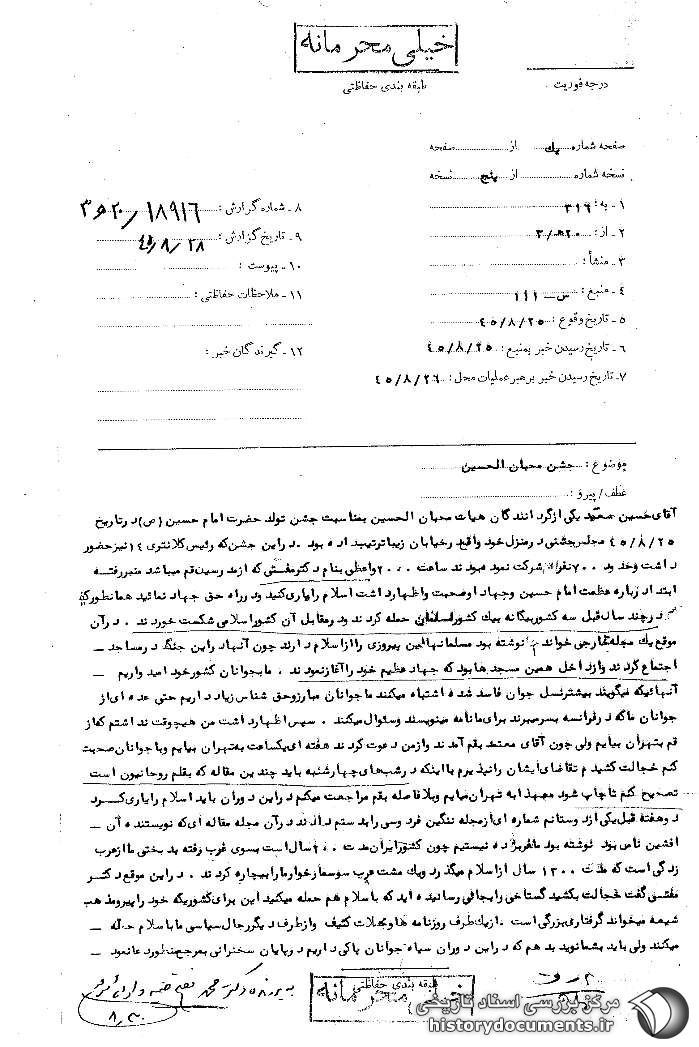 خیلی محرمانه
طبقه بندی حفاظتی
درجه فوریت
صفحه شماره یک از صفحه
نسخه شماره از پنج نسخه
۱ـ به : ۳۱۶
۲ـ از :
۳ـ منشأ :
۴ـ منبع : س ـ ۱۱۱
۵ ـ تاریخ وقوع : ۴۵/۸/۲۵
۶ ـ تاریخ رسیدن خبر بمنبع : ۴۵/۸/۲۵
۷ـ تاریخ رسیدن خبر برهبر عملیات محل : ۴۵/۸/۲۶
۸ ـ شماره گزارش : /۱۸۹۱۶
۹ـ تاریخ گزارش : ۴۵/۸/۲۸
۱۰ـ پیوست :
۱۱ـ ملاحظات حفاظتی :
۱۲ـ گیرندگان خبر :
موضوع : جشن محبان الحسین
عطف / پیرو :
آقای حسین یکی از گردانندگان هیات محبان الحسین بمناسبت جشن تولد حضرت امام حسین (ص) در تاریخ
۴۵/۸/۲۵ مجلس جشنی در منزل خود واقع در خیابان زیبا ترتیب داده بود . در این جشن که رئیس کلانتری ۱۴ نیز حضور
داشت و حدود ۷۰۰ نفر شرکت نموده بودند ساعت ۲۰۰۰ واعظی بنام دکتر مفتح که از مدرسین قم میباشد منبر رفته
ابتدا درباره عظمت امام حسین و جهاد او صحبت و اظهار داشت اسلام را یاری کنید و در راه حق جهاد نمائید همانطور که
در چند سال قبل سه کشور بیگانه بیک کشور اسلامی حمله کردند و در مقابل آن کشور اسلامی شکست خوردند . در آن
موقع یک مجله خارجی خواندم نوشته بود مسلمانها این پیروزی را از اسلام دارند چون آنها در این جنگ در مساجد ـ
اجتماع کردند و از داخل همین مسجدها بود که جهاد عظیم خود را آغاز نمودند . ما بجوانان کشور خود امیدواریم ـ
آنهائیکه میگویند بیشتر نسل جوان فاسد شده اشتباه میکنند ما جوانان مبارز و حق شناس زیاد داریم حتی عده ای از
جوانان ما که در فرانسه بسر میبرند برای ما نامه مینویسند و سئوال میکنند . سپس اظهار داشت من هیچوقت نداشتم که از
قم بتهران بیایم ولی چون آقای معتمد بقم آمدند و از من دعوت کردند هفته ای یکساعت بتهران بیایم و با جوانان صحبت
کنم خجالت کشیدم تقاضای ایشان را نپذیرم با اینکه در شب های چهارشنبه باید چندین مقاله که بقلم روحانیون است
تصحیح کنم تا چاپ شود معهذا به تهران میایم و بلافاصله بقم مراجعت میکنم در این دوران باید اسلام را یاری کرد
دو هفته قبل یکی از دوستانم شماره ای از مجله ننگین فردوسی را بدستم دادند در آن مجله مقاله ای که نویسنده آن ـ
افشین نامی بود نوشته بود ما غربزده نیستیم چون کشور ایران مدت ۱۰۰ سال است بسوی غرب رفته بدبختی ما از عرب
زدگی است که مدت ۱۳۰۰ سال از اسلام میگذرد و یک مشت عرب سوسمار خوار ما را بیچاره کردند . در این موقع دکتر
مفتحی گفت خجالت بکشید گستاخی را بجائی رسانیده اید که باسلام هم حمله میکنید این برای کشوریکه خود را پیرو مذهب
شیعه میخواند گرفتاری بزرگی است . از یکطرف روزنامه ها و مجلات کثیف و از طرف دیگر رجال سیاسی ما باسلام حمله ـ
میکنند ولی باید بشما نوید بدهم که در این دوران سیاه جوانان پاکی داریم در پایان سخنرانی
طبقه بندی حفاظتی
خیلی محرمانه
به پرونده دکتر محمد مفتح
۸/۳۰
مرکز بررسی اسناد تاریخی
historydocuments.ir